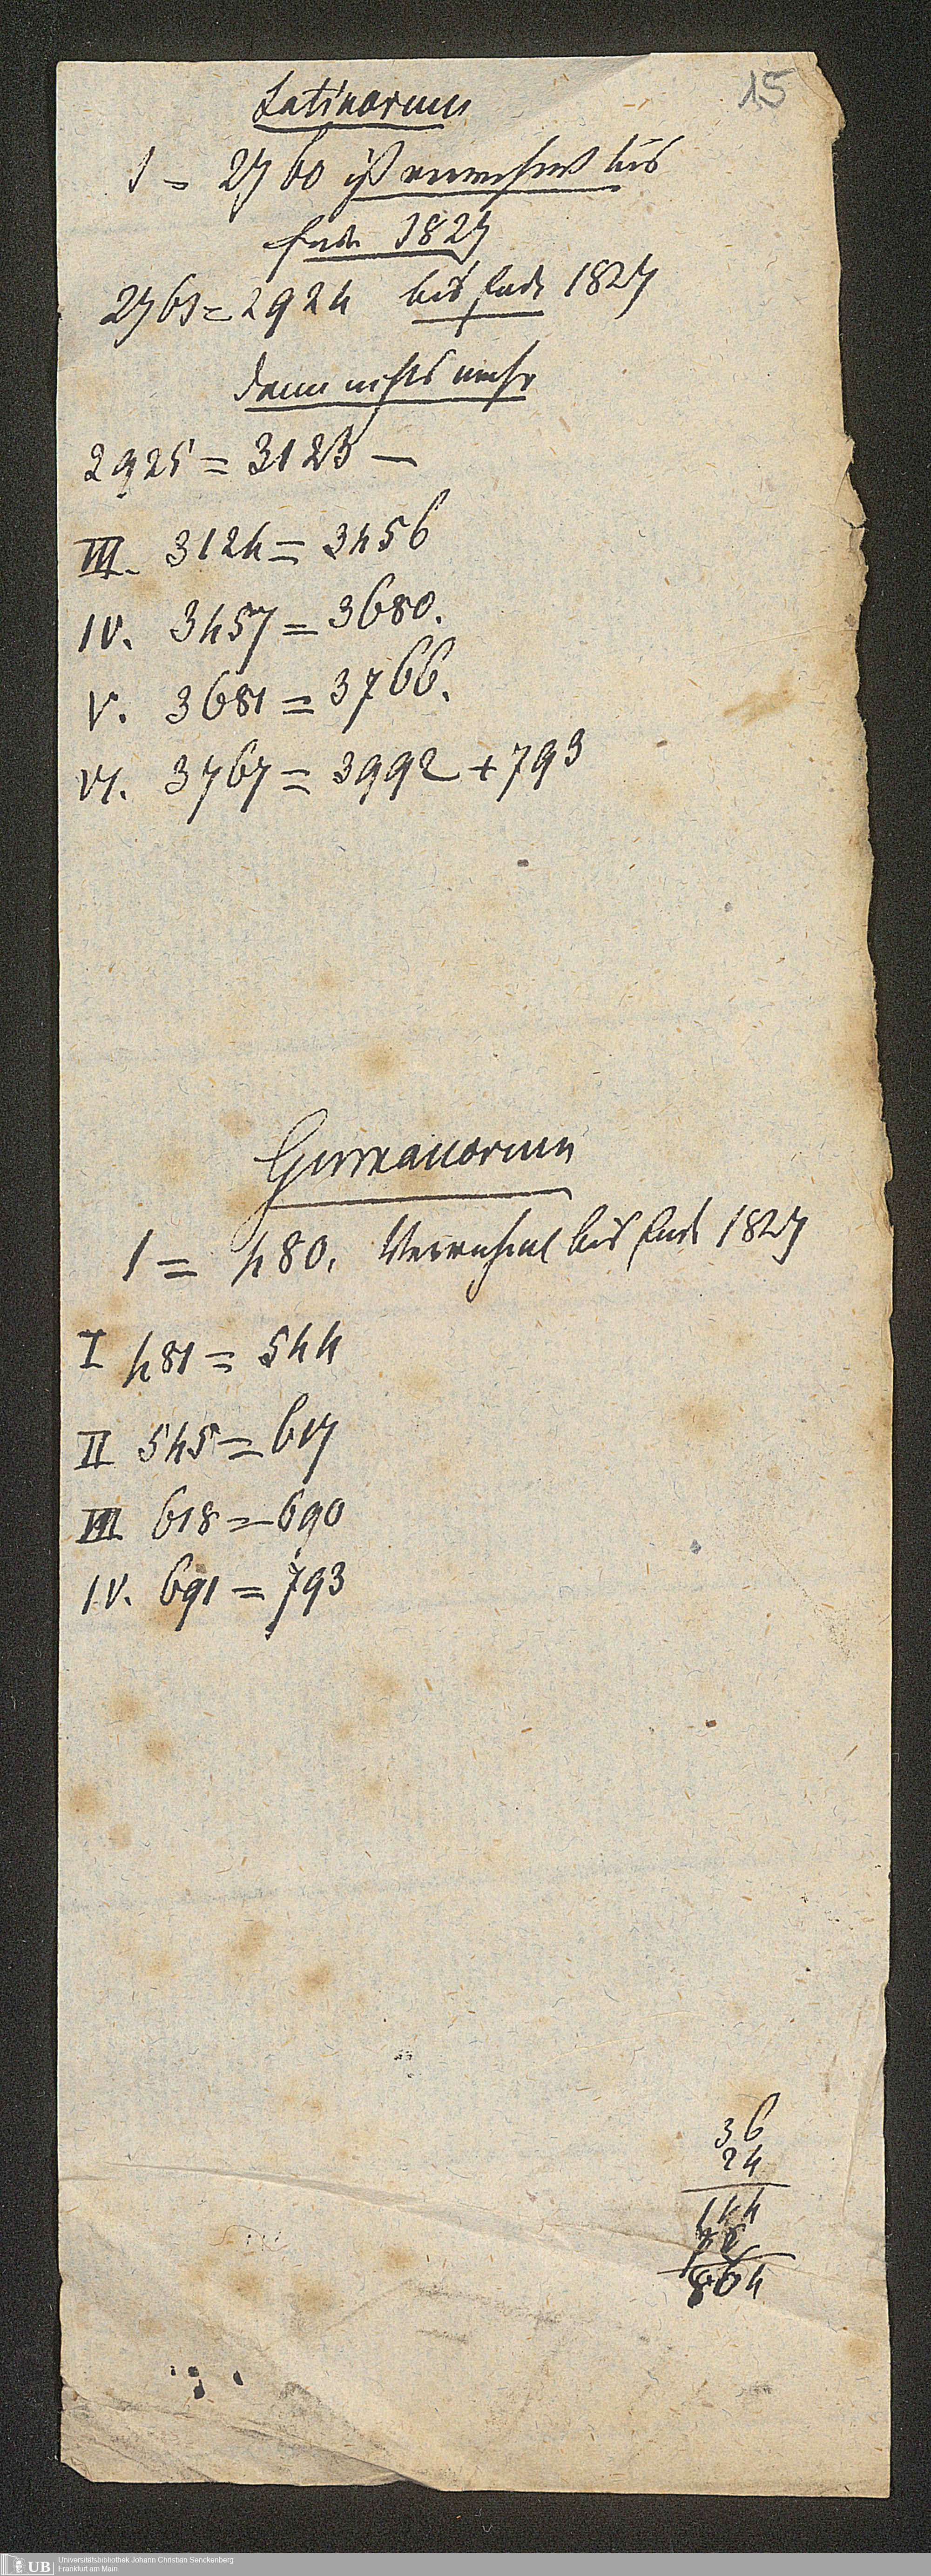 15
Latinorum
1 = 2760 ist vermehrt bis
Ende 1827
2761 = 2924 bis Ende 1827
dann nichts mehr
2925 = 3123 —
III. 3124 = 3456
IV. 3457 = 3680.
V. 3681 = 3766.
VI. 3767 = 3992 + 793
Germanorum
1 = 480. Vermehrt bis Ende 1827
I 481 = 544
II 545 = 617
III 618 = 690
IV. 691 = 793
36
24
144
72
864
UB Universitätsbibliothek Johann Christian Senckenberg
Frankfurt am Main